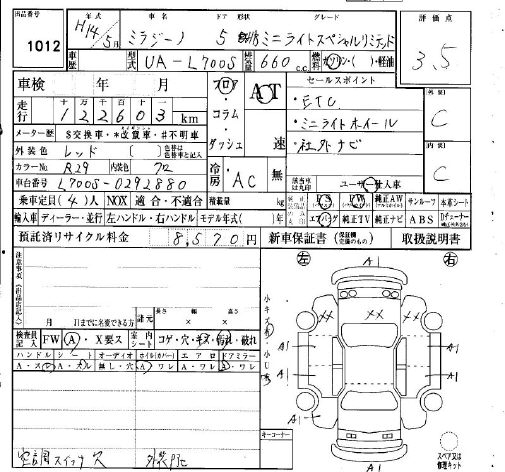 出品番号 1012
年式 H14年5月 車名 ミラジーノ ドア 形状 5 グレード ミニライトスペシャルリミテッド
評価点 3.5
車歴 型式 UA-L700S 排気量 660 c.c. 燃料 ガソリン・( )・軽油
車検 年 月 フロア・コラム・ダッシュ AT 速 セールスポイント
走行 十 万 千 百 十 一 122603 km
・ETC
・ミニライトホイール
・社外ナビ
外装 C
内装 C
メーター歴 $交換車・*改ざん車・#不明車
外装色 レッド ( ) 色替は色替車と記入
カラーNo. R29 内装色 クロ
車台番号 L700S-0292880
冷房 AC 無
該当車は丸印 ユーザー仕入車
乗車定員 (4)人 NOX 適合・不適合 積載量 kg
PS PW 純正AW サンルーフ 本革シート
輸入車 ディーラー・並行 左ハンドル・右ハンドル モデル年式( )
エアバッグ 純正TV 純正ナビ ABS
預託済リサイクル料金 8,570円 新車保証書 取扱説明書
注意事項(出品店記入)
月 日までに名変できる方
諸元 長さ 幅 高さ
左 右
検査員記入 FW A X要ス 室内シート コゲ・穴・キズ・汚れ・破れ
ハンドル シート オーディオ ホイル(カバー) エアロ ドアミラー
A・ス A・ス 無し・穴 A・ワレ A・ワレ A・ワレ
空調スイッチ ス
キーコーナー
スペア又は修理キット
A1
XX XX
A1 A1
A1 A1
A1
A1